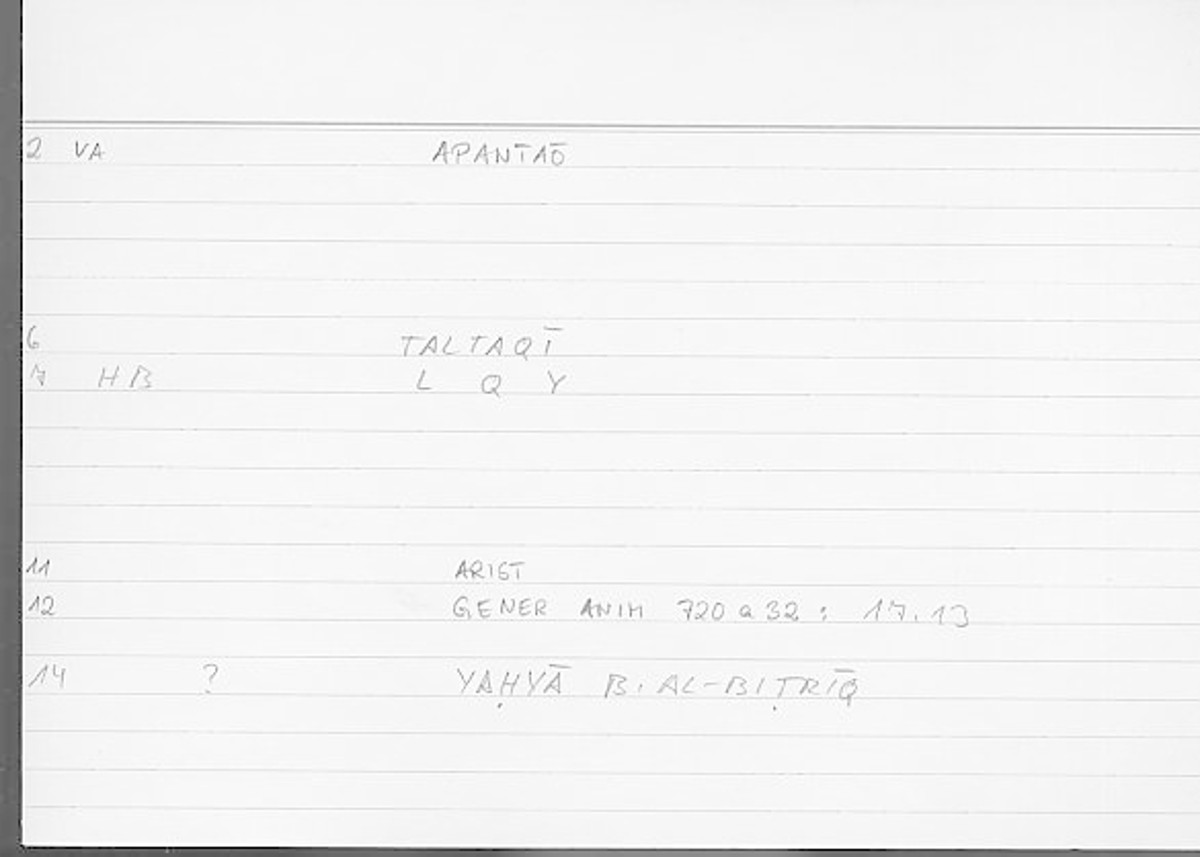 2 VA APANTAŌ
6 TALTAQĪ
7 HB L Q Y
11 ARIST
12 GENER ANIM 720 a 32 : 17.13
14 ? YAḤYĀ B. AL-BIṬRĪQ